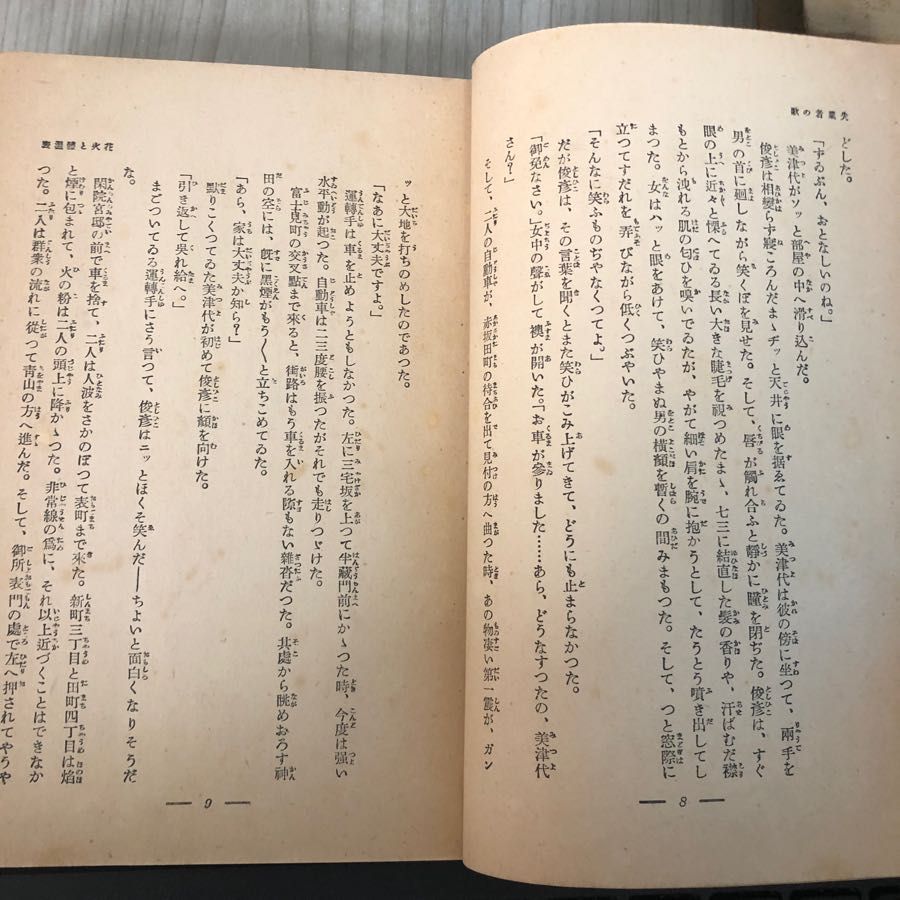 失業者の歌
どした。
「ずゐぶん、おとなしいのね。」
美津代がソッと部屋の中へ滑り込んだ。
俊彦は相變らず寢ころんだまゝヂッと天井に眼を据ゑてゐた。美津代は彼の傍に坐つて、兩手を
男の首に廻しながら笑くぼを見せた。そして、唇が觸れ合ふと靜かに瞳を閉ぢた。俊彦は、すぐ
眼の上に近々と慄へてゐる長い大きな睫毛を視つめたまゝ、七三に結直した髮の香りや、汗ばむだ襟
もとから洩れる肌の匂ひを嗅いでゐたが、やがて細い肩を腕に抱かうとして、たうとう噴き出してし
まつた。女はハッと眼をあけて、笑ひやまぬ男の橫顏を暫くの間みまもつた。そして、つと窓際に
立つてすだれを弄びながら低くつぶやいた。
「そんなに笑ふものぢやなくつてよ。」
だが俊彦は、その言葉を聞くとまた笑ひがこみ上げてきて、どうにも止まらなかつた。
「御免なさい。」女中の聲がして襖が開いた。「お車が參りました……あら、どうなすつたの、美津代
さん？」
そして、二人の自動車が、赤坂田町の待合を出て見付の方へ曲つた時、あの物凄い第一震が、ガン
8
花火と體溫表
ッと大地を打ちのめしたのであつた。
「なあに大丈夫ですよ。」
運轉手は車を止めようともしなかつた。左に三宅坂を上つて半藏門前にかゝつた時、今度は强い
水平動が起つた。自動車は二三度腰を振つたがそれでも走りつゞけた。
富士見町の交叉點まで來ると、街路はもう車を入れる隙もない雜沓だつた。其處から眺めおろす神
田の空には、旣に黑煙がもう〱と立ちこめてゐた。
「あら、家は大丈夫か知ら？」
默りこくつてゐた美津代が初めて俊彦に顏を向けた。
「引き返して吳れ給へ。」
まごついてゐる運轉手にさう言つて、俊彦はニッとほくそ笑んだ――ちよいと面白くなりそうだ
な。
閑院宮邸の前で車を捨て、二人は人波をさかのぼつて表町まで來た。新町三丁目と田町四丁目は焰
と煙に包まれて、火の粉は二人の頭上に降かゝつた。非常線の爲に、それ以上近づくことはできなか
つた。二人は群衆の流れに從つて靑山の方へ進んだ。そして、御所表門の處で左へ押されてやうや
9